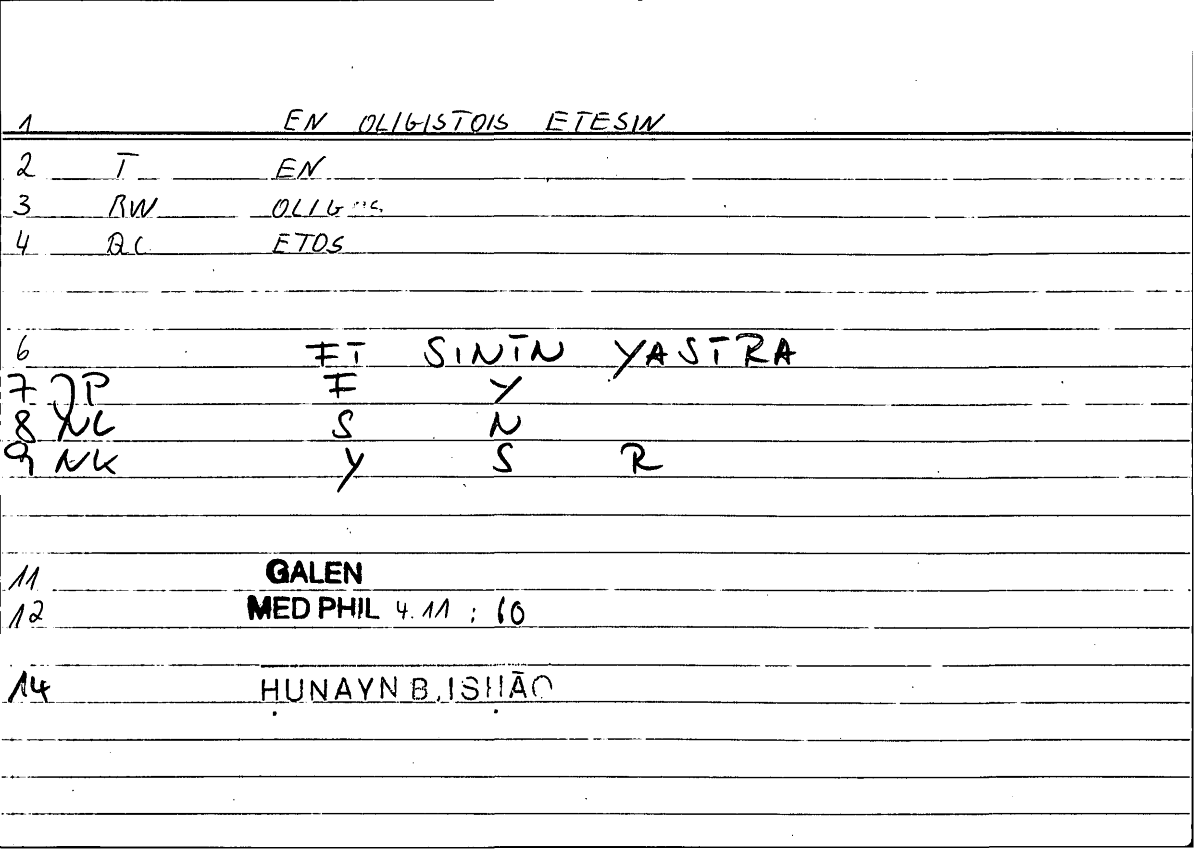 1 EN OLIGISTOIS ETESIN
2 T EN
3 RW OLIGOS
4 QC ETOS
6 FI SININ YASIRA
7 JP F Y
8 NC S N
9 NK Y S R
11 GALEN
12 MED PHIL 4.11 : 10
14 ḤUNAYN B. ISḤĀQ